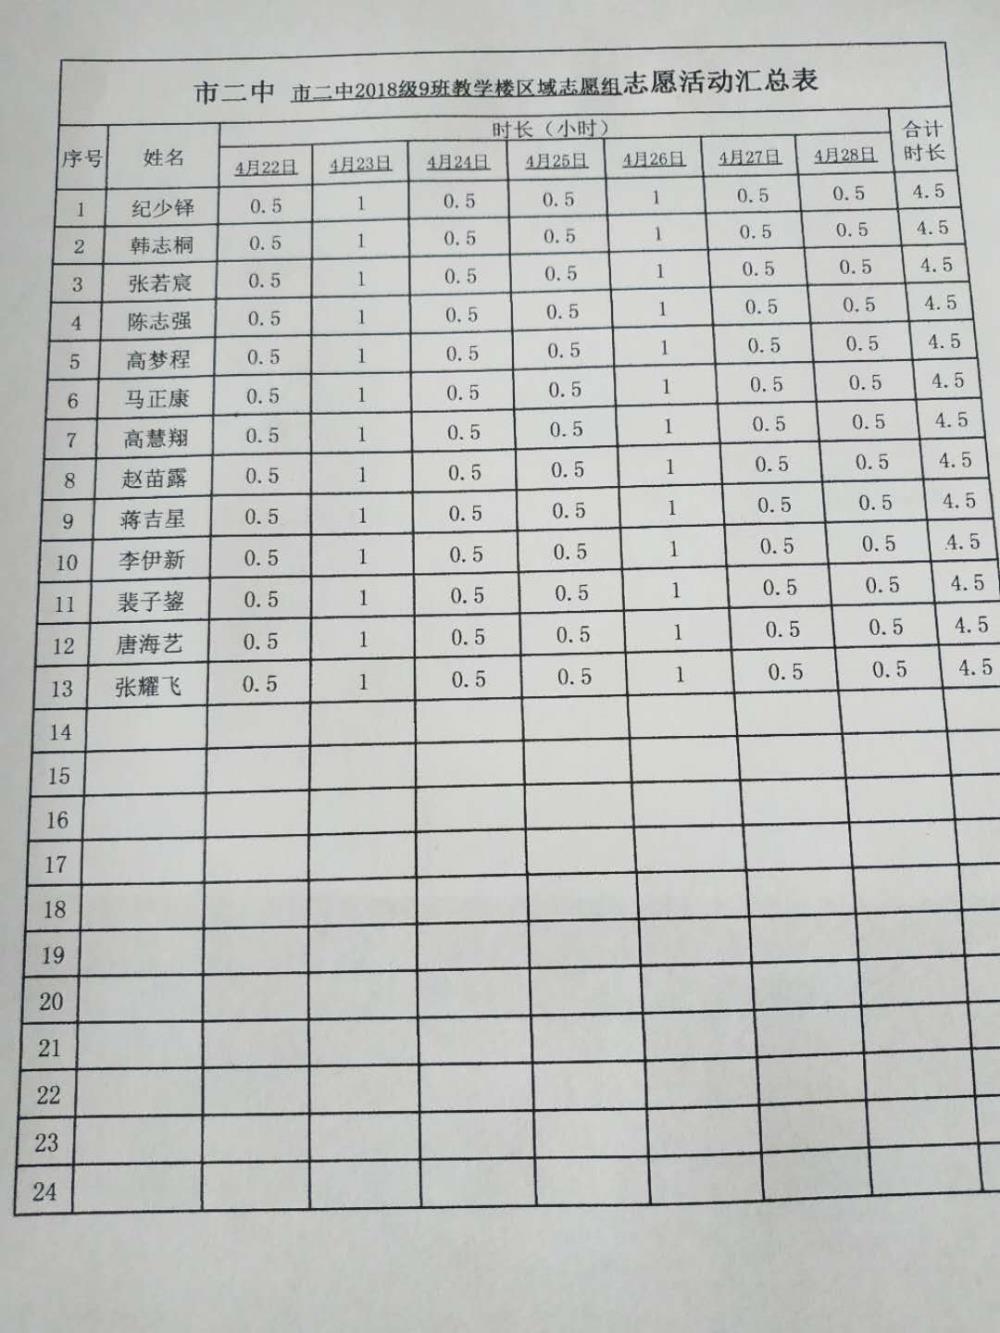 市二中 市二中2018级9班教学楼区域志愿组志愿活动汇总表
序号 姓名 时长（小时） 合计时长
4月22日 4月23日 4月24日 4月25日 4月26日 4月27日 4月28日
1 纪少铎 0.5 1 0.5 0.5 1 0.5 0.5 4.5
2 韩志桐 0.5 1 0.5 0.5 1 0.5 0.5 4.5
3 张若宸 0.5 1 0.5 0.5 1 0.5 0.5 4.5
4 陈志强 0.5 1 0.5 0.5 1 0.5 0.5 4.5
5 高梦程 0.5 1 0.5 0.5 1 0.5 0.5 4.5
6 马正康 0.5 1 0.5 0.5 1 0.5 0.5 4.5
7 高慧翔 0.5 1 0.5 0.5 1 0.5 0.5 4.5
8 赵苗露 0.5 1 0.5 0.5 1 0.5 0.5 4.5
9 蒋吉星 0.5 1 0.5 0.5 1 0.5 0.5 4.5
10 李伊新 0.5 1 0.5 0.5 1 0.5 0.5 4.5
11 裴子鋆 0.5 1 0.5 0.5 1 0.5 0.5 4.5
12 唐海艺 0.5 1 0.5 0.5 1 0.5 0.5 4.5
13 张耀飞 0.5 1 0.5 0.5 1 0.5 0.5 4.5
14
15
16
17
18
19
20
21
22
23
24